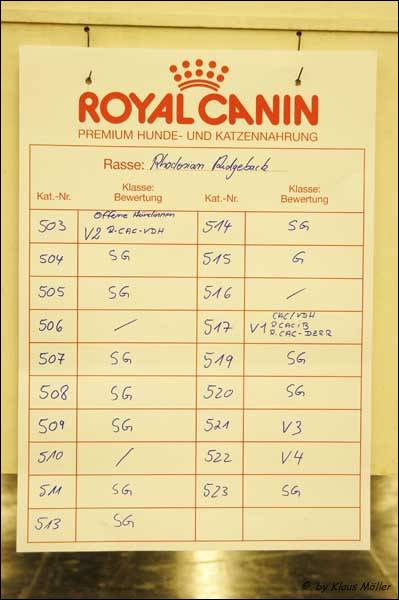 ROYAL CANIN
PREMIUM HUNDE- UND KATZENNAHRUNG
Rasse: Rhodesian Ridgeback
Kat.-Nr. Klasse: Bewertung Kat.-Nr. Klasse: Bewertung
503 Offene Hündinnen V2 R.CAC-VDH 514 SG
504 SG 515 G
505 SG 516 /
506 / 517 V1 CAC/VDH R.CACIB R.CAC-DZRR
507 SG 519 SG
508 SG 520 SG
509 SG 521 V3
510 / 522 V4
511 SG 523 SG
513 SG
© by Klaus Möller